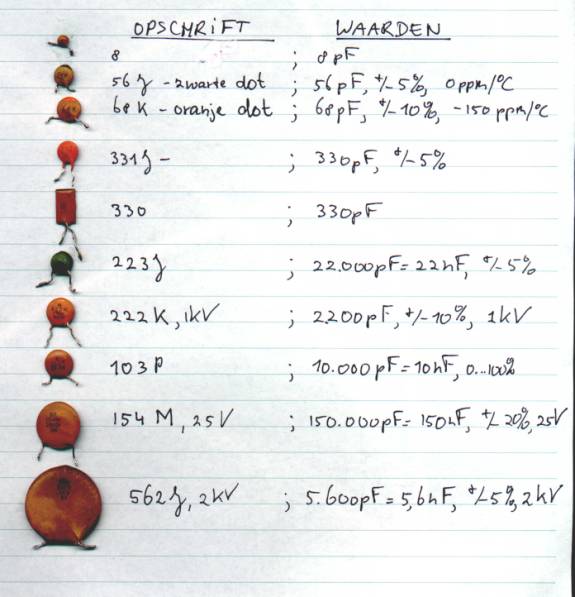 OPSCHRIFT WAARDEN
8 ; 8pF
56J - zwarte dot ; 56pF, +/-5%, 0ppm/°C
68K - oranje dot ; 68pF, +/-10%, -150ppm/°C
331J - ; 330pF, +/-5%
330 ; 330pF
223J ; 22.000pF = 22nF, +/-5%
222K, 1kV ; 2200pF, +/-10%, 1kV
103P ; 10.000pF = 10nF, 0...100%
154M, 25V ; 150.000pF = 150nF, +/-20%, 25V
562J, 2kV ; 5.600pF = 5,6nF, +/-5%, 2kV